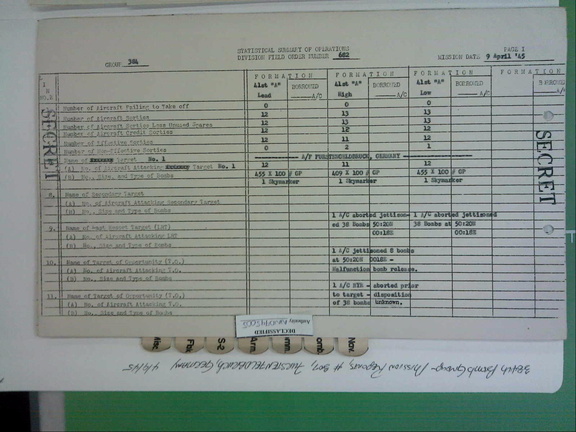 STATISTICAL SUMMARY OF OPERATIONS
DIVISION FIELD ORDER NUMBER 682
PAGE 1
GROUP 384
MISSION DATE 9 April '45
FORMATION FORMATION FORMATION FORMATION
41st "A" BORROWED 41st "A" BORROWED 41st "A" BORROWED BORROWED
Lead A/C High A/C Low A/C A/C
Number of Aircraft Failing to Take off 0 0 0
Number of Aircraft Sorties 12 13 13
Number of Aircraft Sorties Less Unused Spares 12 13 13
Number of Aircraft Credit Sorties 12 12 12
Number of Effective Sorties 12 11 12
Number of Non-Effective Sorties 0 2 1
Name of Target No. 1 A/F FURSTENFELDBRUCK, GERMANY
(A) No. of Aircraft Attacking Target No. 1 12 11 12
(B) No., Size, and Type of Bombs 455 X 100 # GP 409 X 100 # GP 455 X 100 # GP
1 Skymarker 1 Skymarker 1 Skymarker
8. Name of Secondary Target
(A) No. of Aircraft Attacking Secondary Target
(B) No., Size and Type of Bombs 1 A/C aborted jettison- 1 A/C aborted jettisoned
9. Name of Last Resort Target (LRT) ed 38 Bombs 50:20N 38 Bombs at 50:20N
(A) No. of Aircraft Attacking LRT 00:18E 00:18E
(B) No., Size and Type of Bombs
1 A/C jettisoned 8 bombs
10. Name of Target of Opportunity (T.O.) at 50:20N 00:18E -
(A) No. of Aircraft Attacking T.O. Malfunction bomb release.
(B) No., Size and Type of Bombs
1 A/C NYR - aborted prior
11. Name of Target of Opportunity (T.O.) to target - disposition
(A) No. of Aircraft Attacking T.O. of 38 bombs unknown.
(B) No., Size and Type of Bombs
SECRET
SECRET
DECLASSIFIED
Authority
Fbr
S-2
Arm.
Nav.
384th Bomb Group - Mission Reports, # 307, FURSTENFELDBRUCK, GERMANY 4/9/45